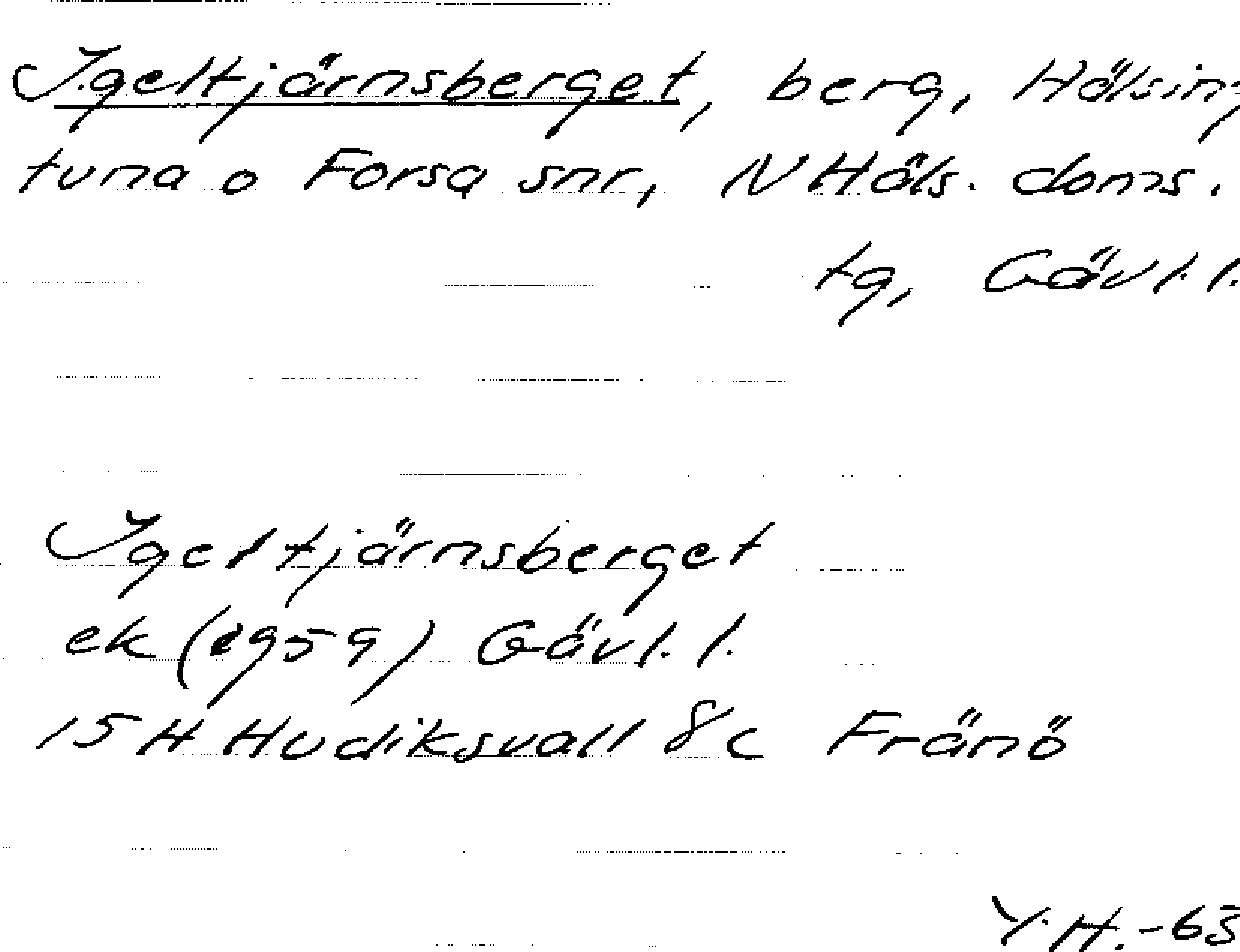 Igeltjärnsberget, berg, Hälsing
tuna o Forsa snr, N Häls. doms.
tg, Gävl. l.
Igeltjärnsberget
ek (1959) Gävl. l.
15 H Hudiksvall 8c Fränö
Y.H.-63